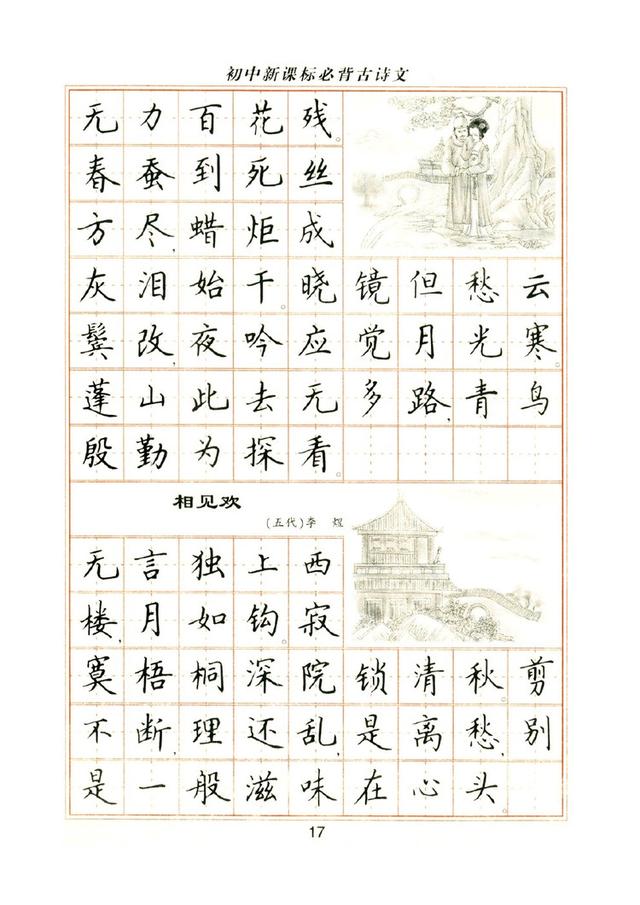 初中新课标必背古诗文
无力百花残。
春蚕到死丝
方尽,蜡炬成
灰泪始干。晓镜但愁云
鬓改,夜吟应觉月光寒。
蓬山此去无多路,青鸟
殷勤为探看。
相见欢
(五代)李 煜
无言独上西
楼,月如钩。寂
寞梧桐深院锁清秋。剪
不断,理还乱,是离愁,别
是一般滋味在心头。
17